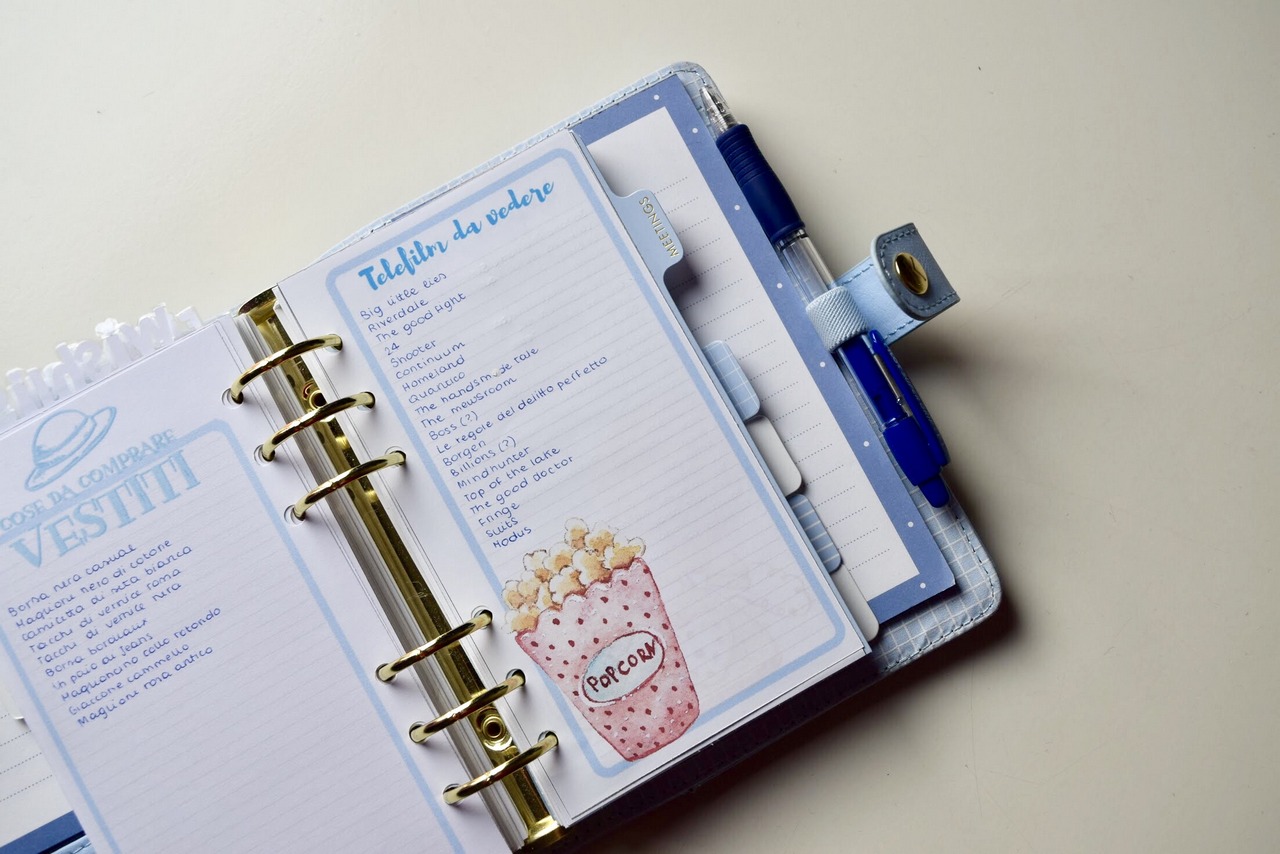 COSE DA COMPRARE
VESTITI
Borsa nera casual
Maglione nero di cotone
Camicetta di seta bianca
Tacchi di vernice roma
Tacchi di vernice nera
Borsa bordeaux
Un paio di Jeans
Maglioncino collo rotondo
Giaccone cammello
Maglione rosa antico
Telefilm da vedere
Big little lies
Riverdale
The good fight
24
Shooter
Continuum
Homeland
Quantico
The handsmade tale
The newsroom
Boss (?)
Le regole del delitto perfetto
Borgen
Billions (?)
Mindhunter
Top of the lake
The good doctor
Fringe
Suits
Modus
POPCORN
MEETINGS